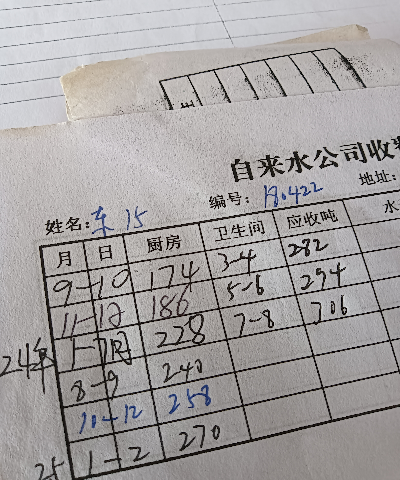 自来水公司收
姓名: 东 15 编号: 180422 地址:
月 日 厨房 卫生间 应收吨 水
9-10 174 3-4 282
11-12 186 5-6 294
24年 1-7月 228 7-8 306
8-9 240
10-12 258
25 1-2 270